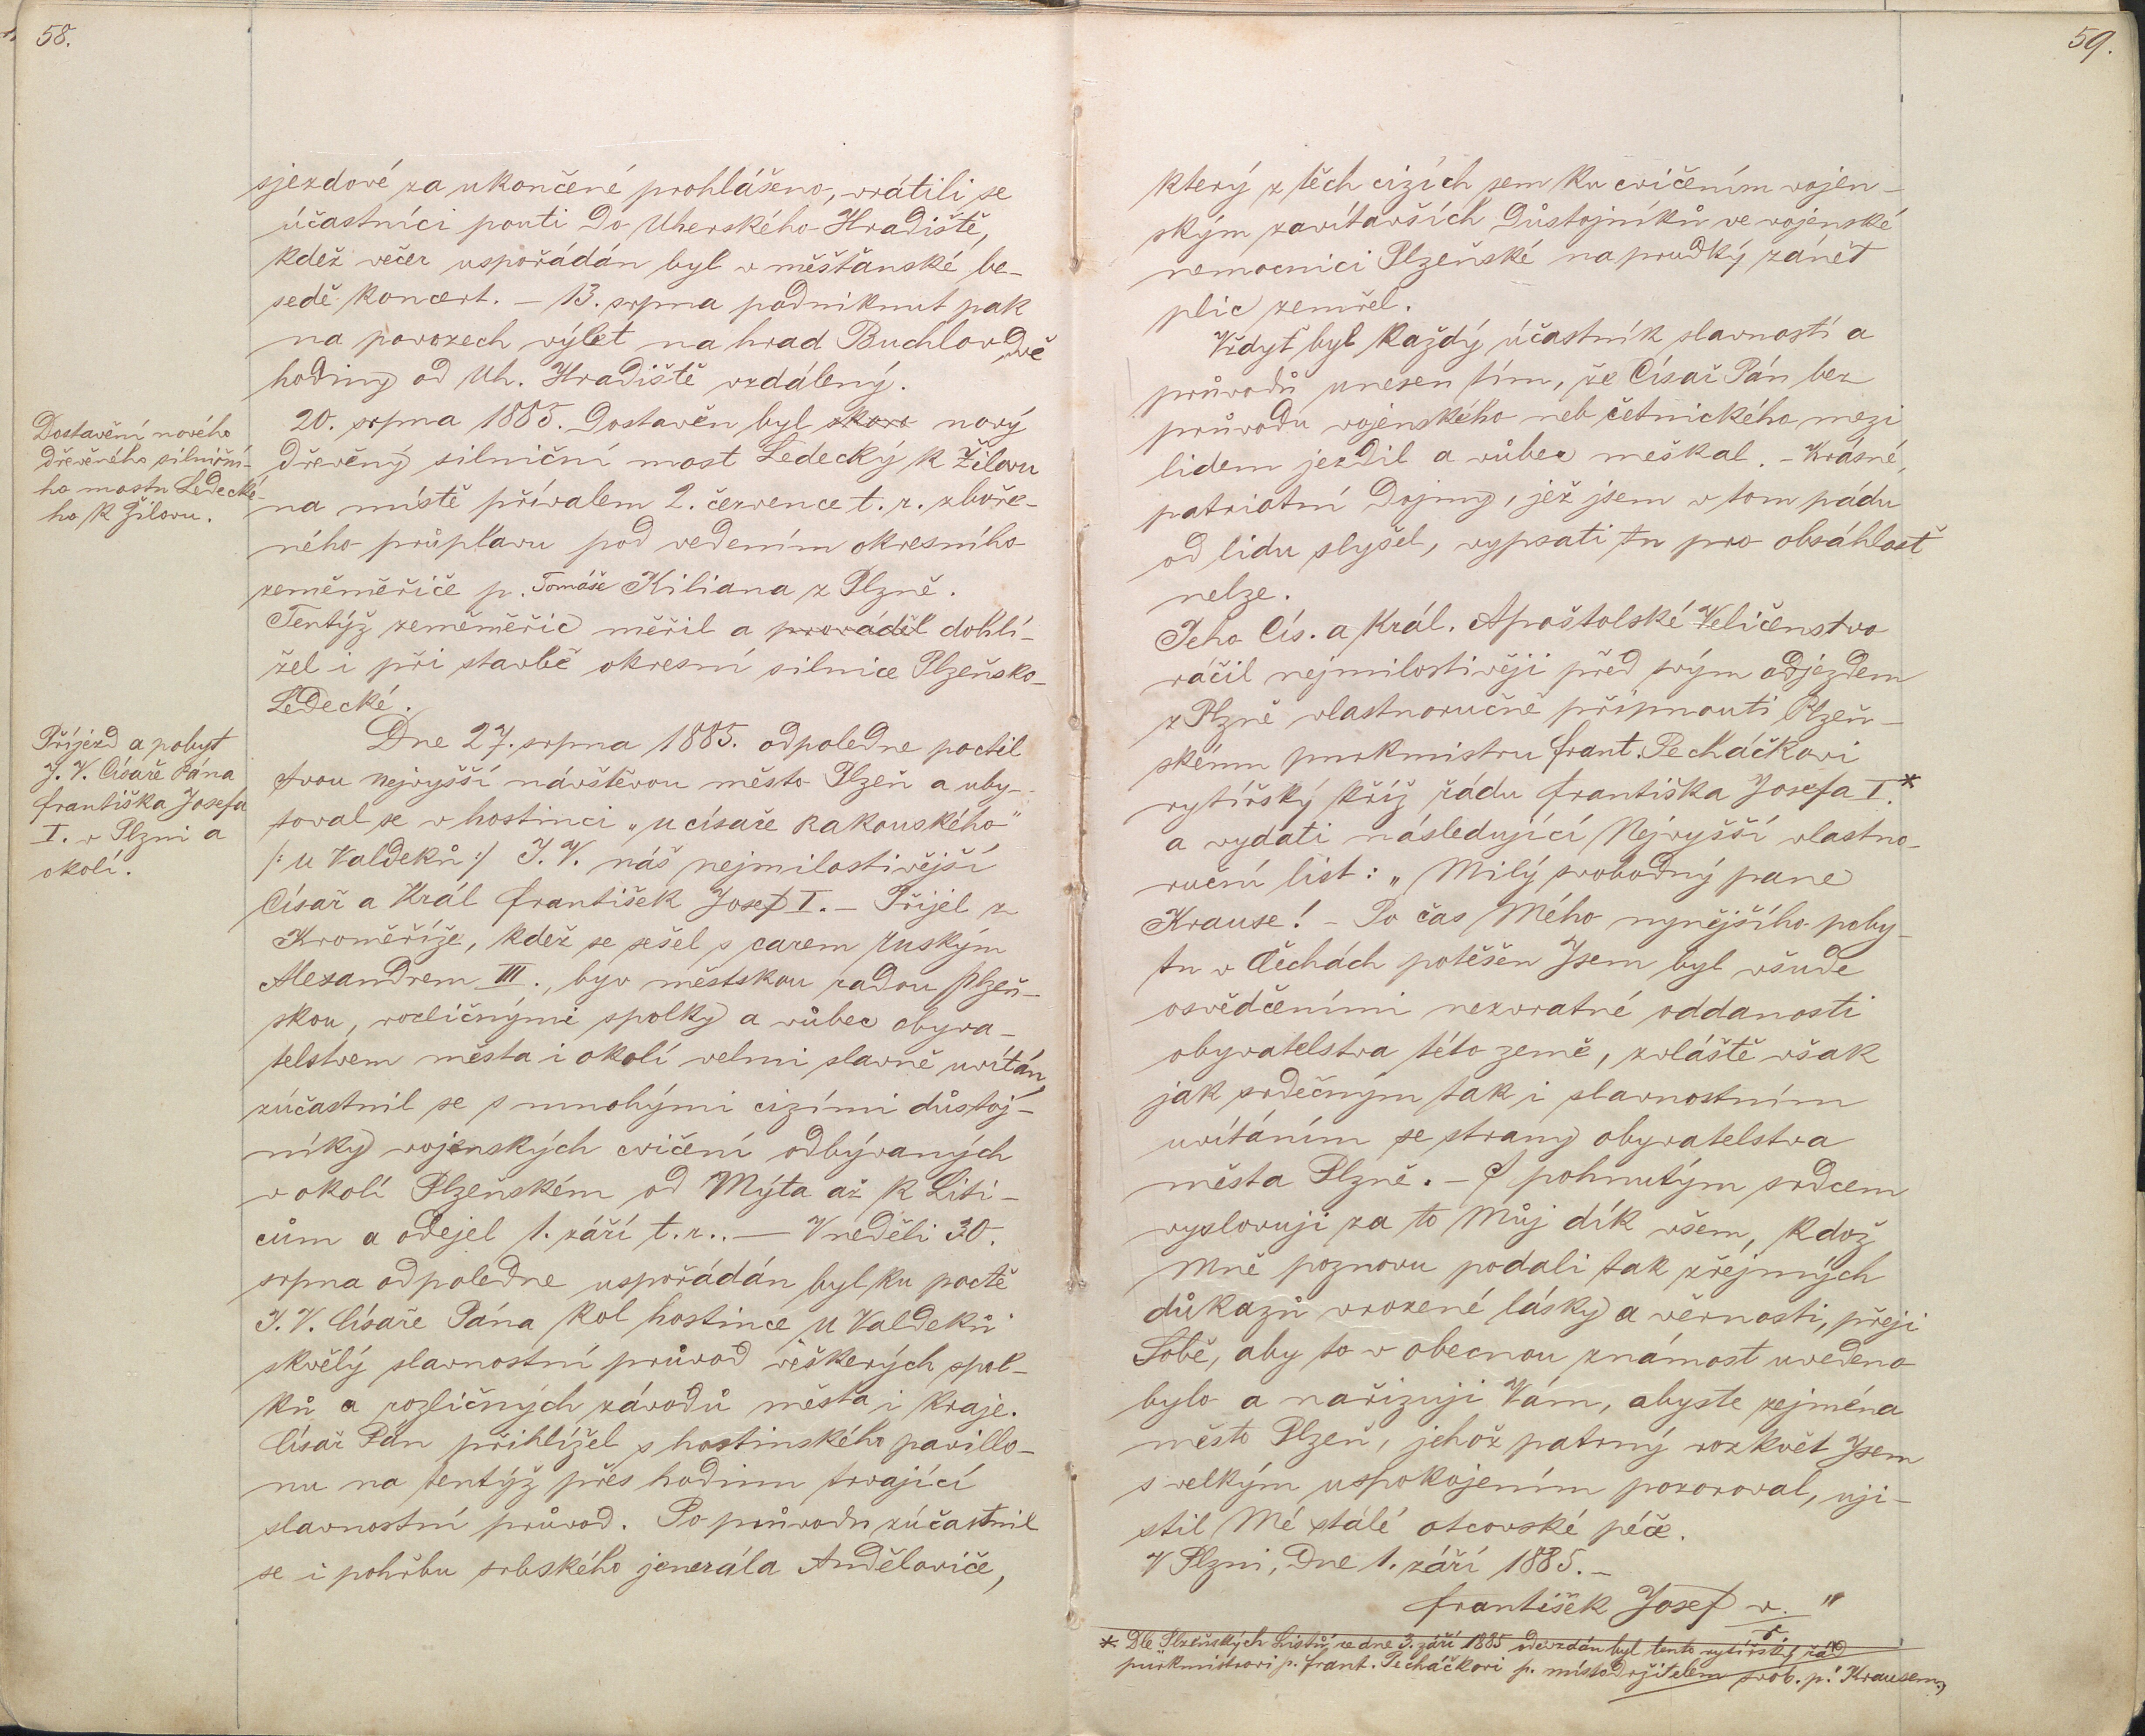 58.
sjezdové za ukončené prohlášeno, vrátili se
účastníci pouti do Uherského Hradiště,
kdež večer uspořádán byl v měšťanské be-
sedě koncert. – 13. srpna podniknut pak
na povozech výlet na hrad Buchlov dvě
hodiny od Uh. Hradiště vzdálený.
Dostavění nového
dřevěného silniční-
ho mostu Ledecké-
ho k Žilovu.
20. srpna 1885. dostavěn byl skoro nový
dřevěný silniční most Ledecký k Žilovu
na místě přívalem 2. července t. r. zboře-
ného průplavu pod vedením okresního
zeměměřiče p. Tomáše Kiliana z Plzně.
Tentýž zeměměřič měřil a prováděl dohlí-
žel i při stavbě okresní silnice Plzeňsko-
Ledecké.
Příjezd a pobyt
J. V. Císaře Pána
Františka Josefa
I. v Plzni a
okolí.
Dne 27. srpna 1885. odpoledne poctil
svou nejvyšší návštěvou město Plzeň a uby-
toval se v hostinci „u císaře rakouského"
/: u Valdeků :/ J. V. náš nejmilostivější
Císař a Král František Josef I. – Přijel z
Kroměříže, kdež se sešel s carem ruským
Alexandrem III., byv městskou radou plzeň-
skou, rozličnými spolky a vůbec obyva-
telstvem města i okolí velmi slavně uvítán,
zúčastnil se s mnohými cizími důstoj-
níky vojenských cvičení odbývaných
v okolí Plzeňském od Mýta až k Liti-
cům a odejel 1. září t. r.. — V neděli 30.
srpna odpoledne uspořádán byl ku poctě
J. V. Císaře Pána kol hostince „u Valdeků"
skvělý slavnostní průvod veškerých spol-
ků a rozličných závodů města i kraje.
Císař Pán přihlížel s hostinského pavillo-
nu na tentýž přes hodinu trvající
slavnostní průvod. Po průvodu zúčastnil
se i pohřbu srbského jenerála Anděloviče,
59.
který z těch cizích sem ku cvičením vojen-
ským zavítavších důstojníků ve vojenské
nemocnici Plzeňské na prudký zánět
plic zemřel.
Vždyť byl každý účastník slavností a
průvodů unesen tím, že Císař Pán bez
průvodu vojenského neb četnického mezi
lidem jezdil a vůbec meškal. – Krásné,
patriotní dojmy, jež jsem v tom pádu
od lidu slyšel, vypsati tu pro obsáhlost
nelze.
Jeho Cís. a Král. Apoštolské Veličenstvo
ráčil nejmilostivěji před svým odjezdem
z Plzně vlastnoručně připnouti Plzeň-
skému purkmistru Frant. Pecháčkovi
rytířský kříž řádu Františka Josefa I.*
a vydati následující Nejvyšší vlastno-
ruční list: „Milý svobodný pane
Krause! – Po čas Mého nynějšího poby-
tu v Čechách potěšen Jsem byl všude
osvědčeními nezvratné oddanosti
obyvatelstva této země, zvláště však
jak srdečným tak i slavnostním
uvítáním se strany obyvatelstva
města Plzně. – S pohnutým srdcem
vyslovuji za to Můj dík všem, kdož
Mně poznovu podali tak zřejmých
důkazů vrozené lásky a věrnosti, přeji
Sobě, aby to v obecnou známost uvedeno
bylo a nařizuji Vám, abyste zejména
město Plzeň, jehož patrný rozkvět Jsem
s velkým uspokojením pozoroval, uji-
stil Mé stálé otcovské péče.
V Plzni, dne 1. září 1885. –
František Josef v. r. "
*. Dle Plzeňských Listů ze dne 3. září 1885 odevzdán byl tento rytířský řád
purkmistrovi p. Frant. Pecháčkovi p. místodržitelem svob. p. Krausem.